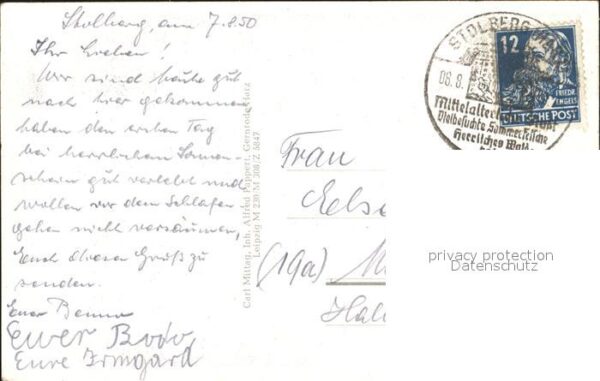 Stolberg, am 7.8.50
Ihr Lieben!
Wir sind heute gut
nach hier gekommen
haben den ersten Tag
bei herrlichem Sonnen-
schein gut verlebt und
wollen vor dem Schlafen-
gehen nicht versäumen,
Euch diesen Gruß zu
senden.
Euer Benno
Euer Bodo
Eure Irmgard
Carl Mittag, Inh. Alfred Pappert, Gernrode/Harz
Leipzig M 230 M 308/Z 5847
STOLBERG
06.8.
Mittelalterliche
Vielbesuchte Sommerfrische
Herrliches
12
FRIEDR.
ENGELS
DEUTSCHE POST
Frau
Else
(19a)
privacy protection
Datenschutz